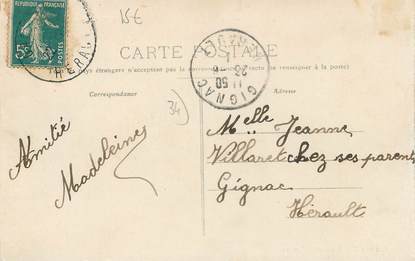 15€
RÉPUBLIQUE FRANÇAISE
5c
POSTES
HÉRAULT
CARTE POSTALE
pays étrangers n'acceptent pas la correspondance
se renseigner à la poste)
GIGNAC
11 50
23
HÉRAULT
Correspondance
Adresse
34
Amitié
Madeleine
Melle Jeanne
Villaret chez ses parents
Gignac
Hérault